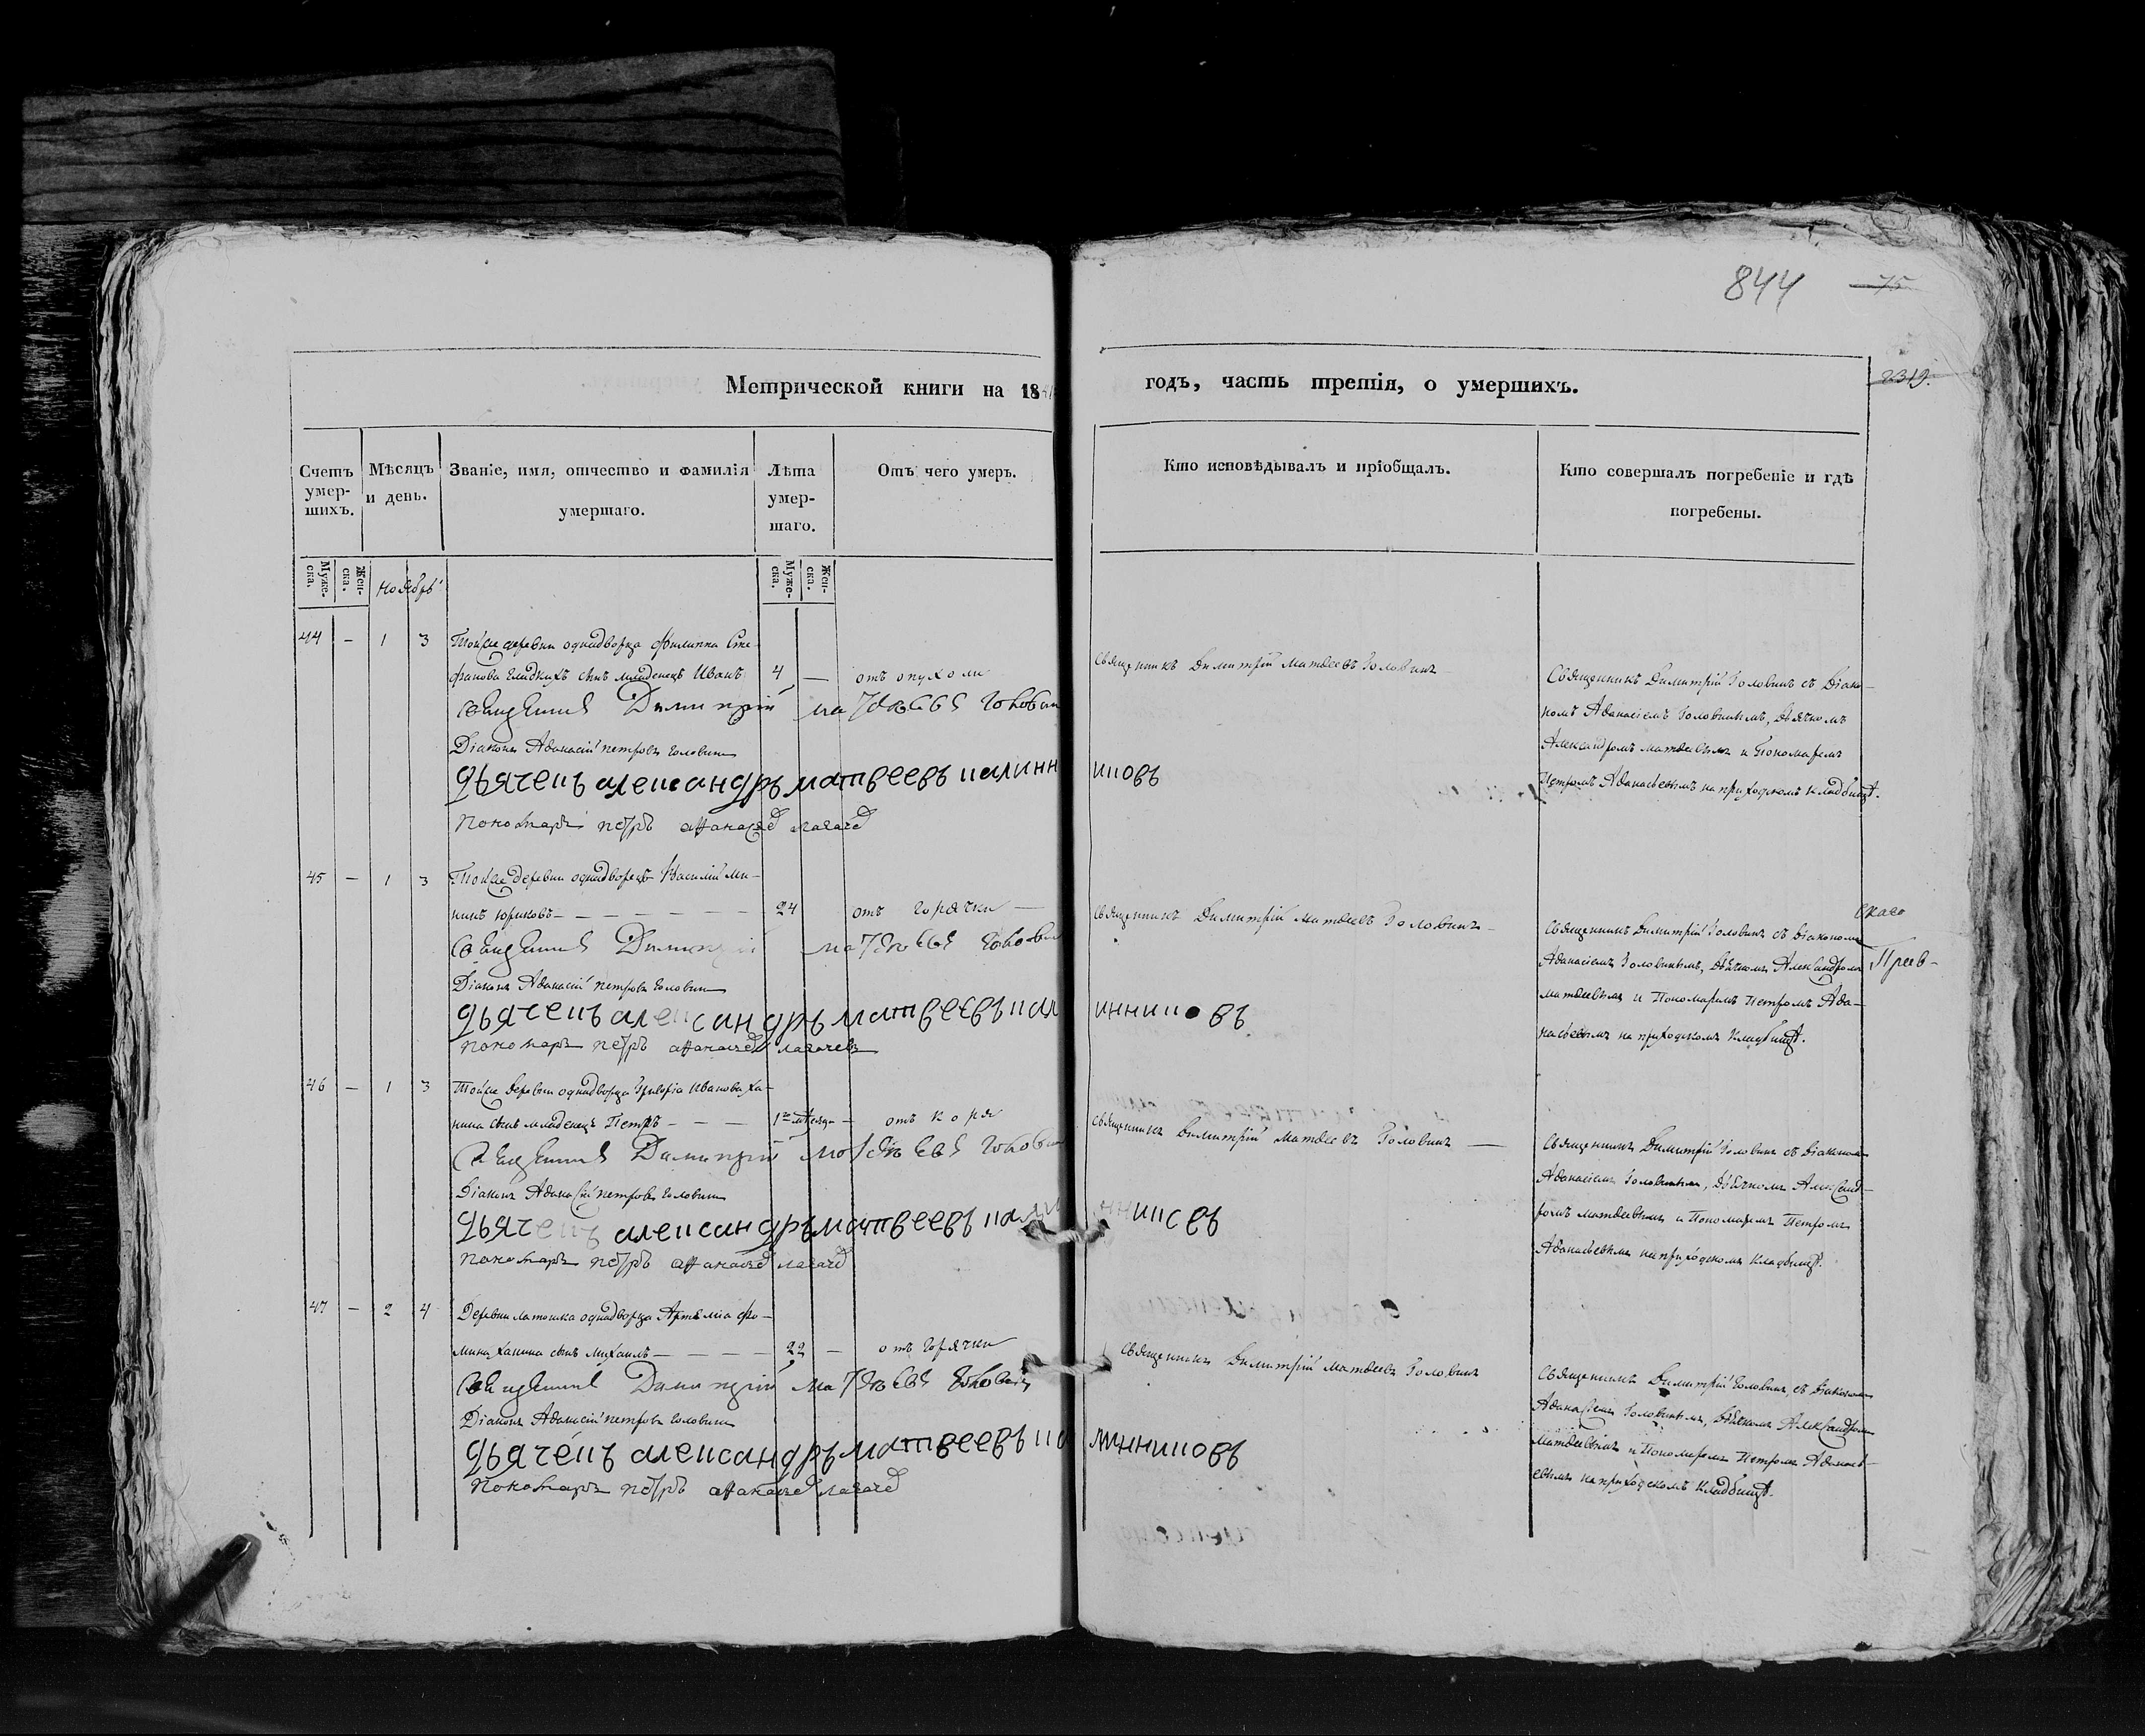 844 75
Метрической книги на 18
годъ, часть третія, о умершихъ.
2319.
Счетъ умер-шихъ.
Мѣсяцъ и день.
Званіе, имя, отчество и фамилія умершаго.
Лѣта умер-шаго.
Отъ чего умеръ.
Кто исповѣдывалъ и пріобщалъ.
Кто совершалъ погребеніе и гдѣ погребены.
Муже-ска.
Жен-ска.
Ноябрь
Муже-ска.
Жен-ска.
44 – 1 3 Тойже деревни однодворца Филиппа Сте-
фанова Гладкихъ сынъ младенецъ Иванъ 4 — отъ опухоли
Священникъ Димитрій Матвеевъ Головинъ
Діаконъ Афанасій Петровъ Головинъ
дьячекъ александръ матвеевъ калинниковъ
пономарь петръ афанасьев
Священникъ Димитрій Матвеевъ Головинъ
Священникъ Димитрій Головинъ съ Діако-
номъ Афанасіемъ Головинымъ, Дьячкомъ
Александромъ Матвеевымъ и Пономаремъ
Петромъ Афанасьевымъ на приходскомъ кладбищѣ.
45 – 1 3 Тойже деревни однодворецъ Василій Ми-
нинъ Юриковъ 24 отъ горячки
Священникъ Димитрій Матвеевъ Головинъ
Діаконъ Афанасій Петровъ Головинъ
дьячекъ александръ матвеевъ калинниковъ
пономарь петръ афанасьев
Священникъ Димитрій Матвеевъ Головинъ
Священникъ Димитрій Головинъ съ Діакономъ
Афанасіемъ Головинымъ, Дьячкомъ Александромъ
Матвеевымъ и Пономаремъ Петромъ Афа-
насьевымъ на приходскомъ кладбищѣ.
46 – 1 3 Тойже деревни однодворца Григорія Иванова Ха-
нина сынъ младенецъ Петръ 1 мѣсяца – отъ коря
Священникъ Димитрій Матвеевъ Головинъ
Діаконъ Афанасій Петровъ Головинъ
дьячекъ александръ матвеевъ калинниковъ
пономарь петръ афанасьев
Священникъ Димитрій Матвеевъ Головинъ
Священникъ Димитрій Головинъ съ Діакономъ
Афанасіемъ Головинымъ, Дьячкомъ Александ-
ромъ Матвеевымъ и Пономаремъ Петромъ
Афанасьевымъ на приходскомъ кладбищѣ.
47 – 2 4 Деревни однодворца Артемія Фо-
мина Ханина сынъ Михаилъ 22 – отъ горячки
Священникъ Димитрій Матвеевъ Головинъ
Діаконъ Афанасій Петровъ Головинъ
дьячекъ александръ матвеевъ калинниковъ
пономарь петръ афанасьев
Священникъ Димитрій Матвеевъ Головинъ
Священникъ Димитрій Головинъ, съ Діакономъ
Афанасіемъ Головинымъ, Дьячкомъ Александромъ
Матвеевымъ и Пономаремъ Петромъ Афанась-
евымъ на приходскомъ кладбищѣ.